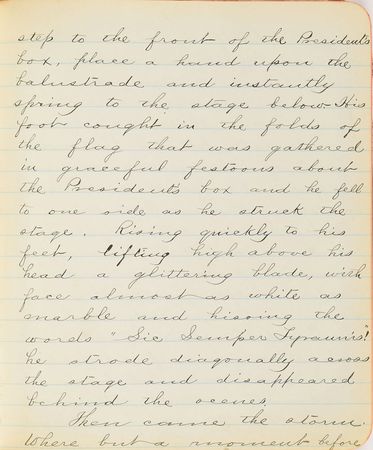 step to the front of the President's
box, place a hand upon the
balustrade and instantly
spring to the stage below. His
foot caught in the folds of
the flag that was gathered
in graceful festoons about
the President's box and he fell
to one side as he struck the
stage. Rising quickly to his
feet, lifting high above his
head a glittering blade, with
face almost as white as
marble and hissing the
words "Sic Semper Tyrannis"!
he strode diagonally across
the stage and disappeared
behind the scenes.
Then came the storm.
Where but a moment before